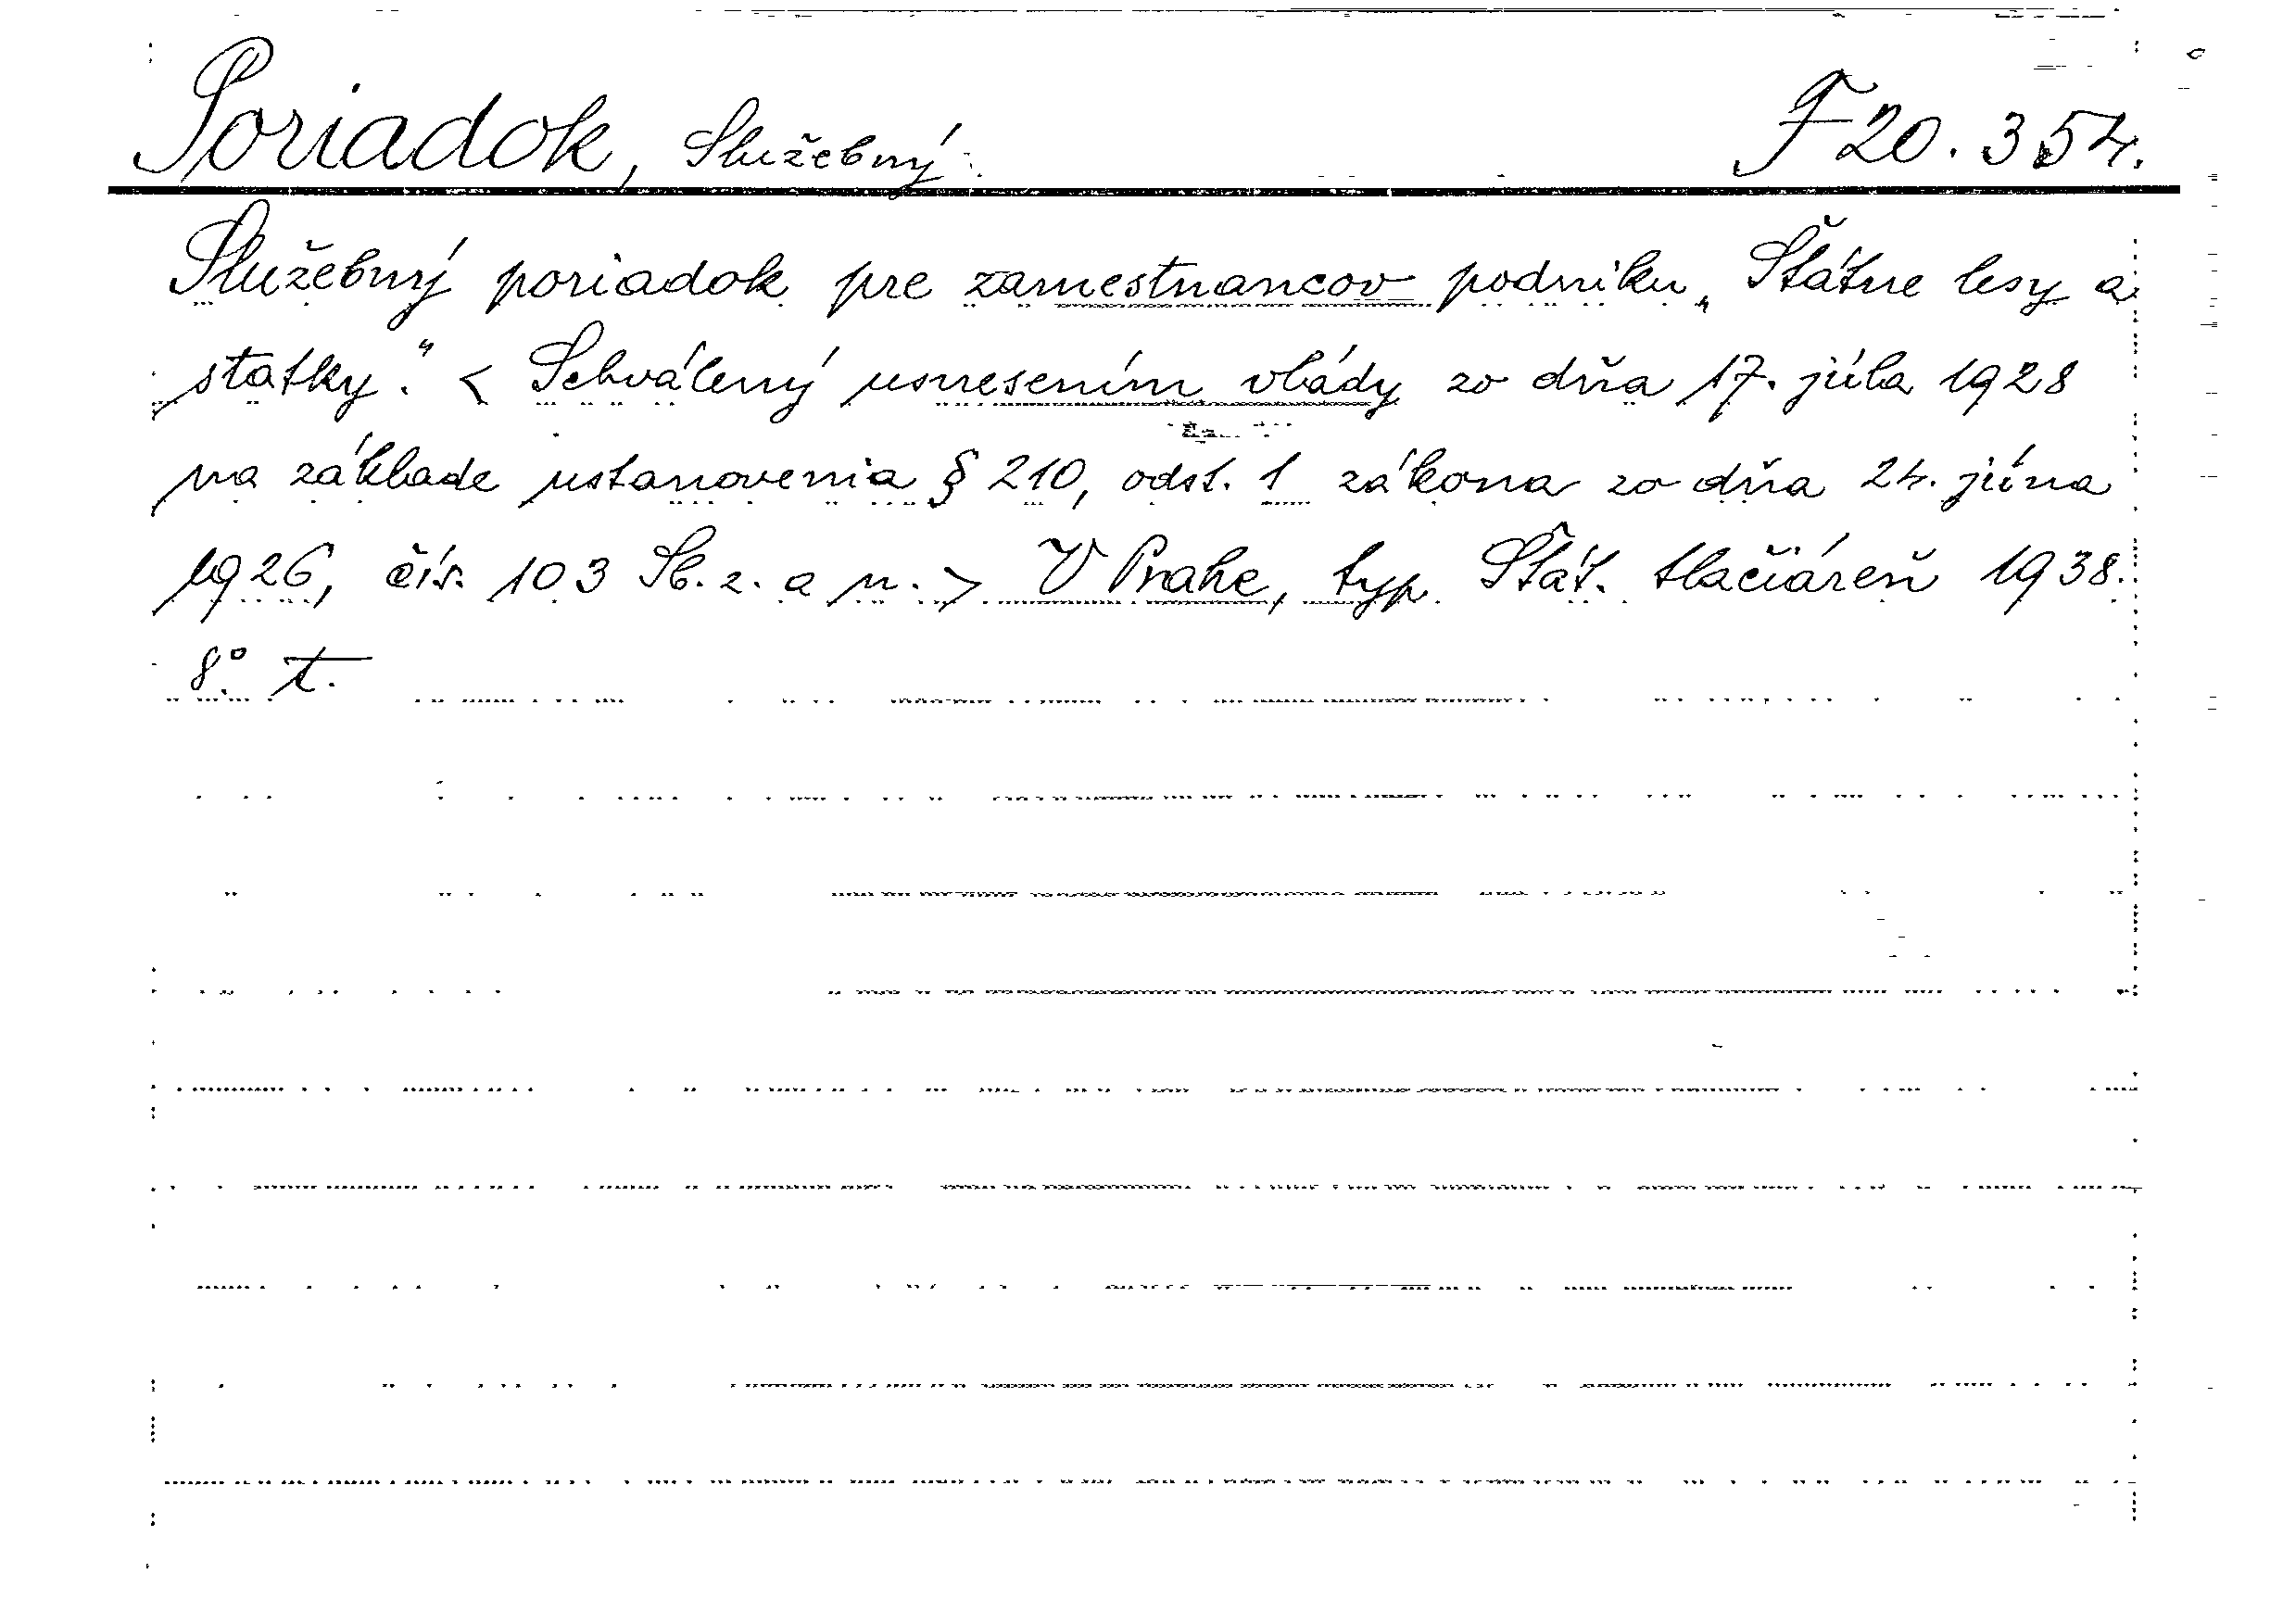 Poriadok, Služebný. F 20.354.
Služebný poriadok pre zamestnancov podniku „Štátne lesy a
statky." < Schválený usnesením vlády zo dňa 17. júla 1928
na základe ustanovenia § 210, odst. 1 zákona zo dňa 24. júna
1926, čís. 103 Sb. z. a n. > V Prahe, typ. Štát. tlačiáreň 1938.
8° t.